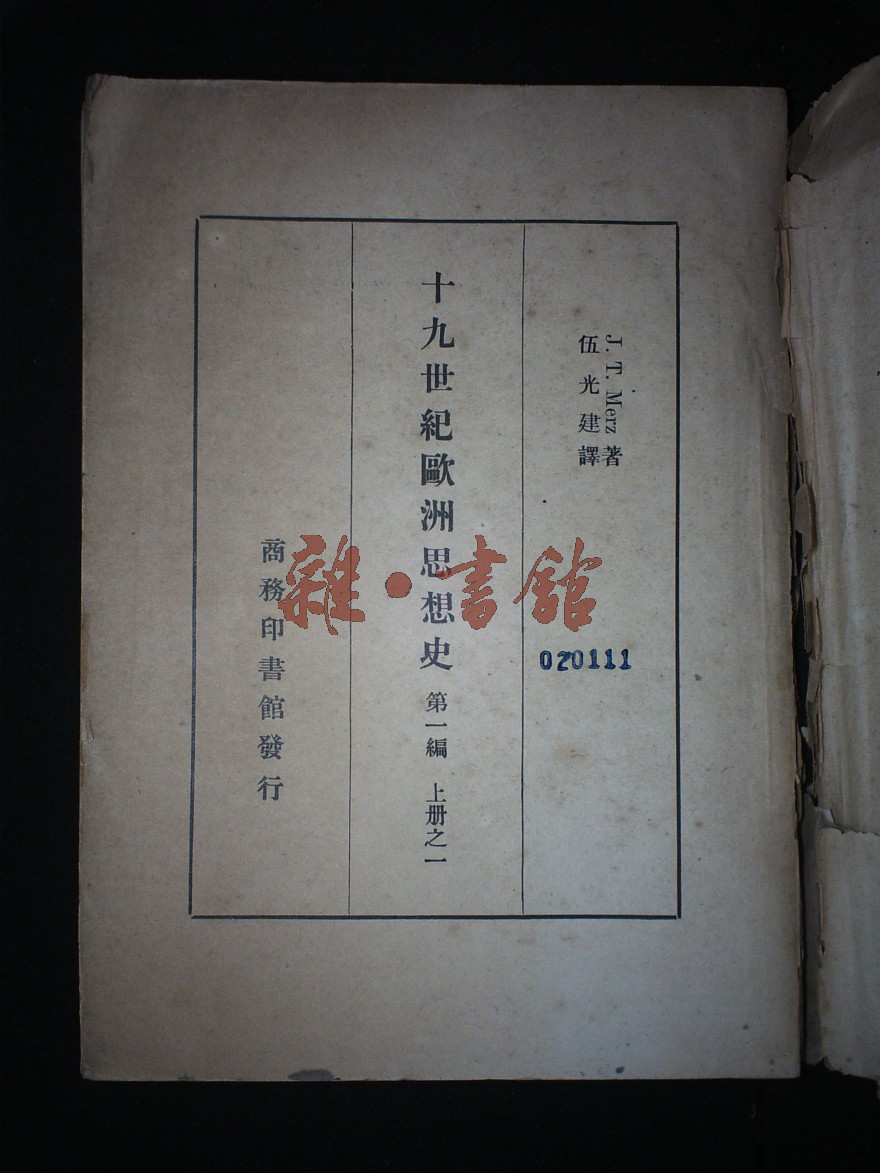 J. T. Merz 著
伍光建譯
十九世紀歐洲思想史 第一編 上册之一
商務印書館發行
雜·書館
020111